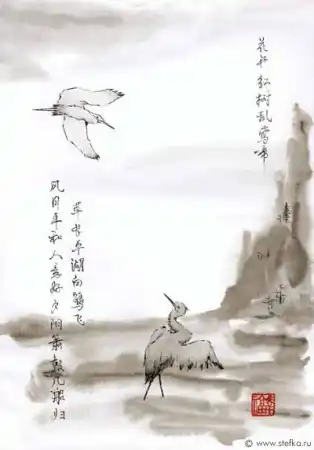 花开红树乱莺啼
草长平湖白鹭飞
风日和人意好夕阳萧鼓几归
© www.stefka.ru